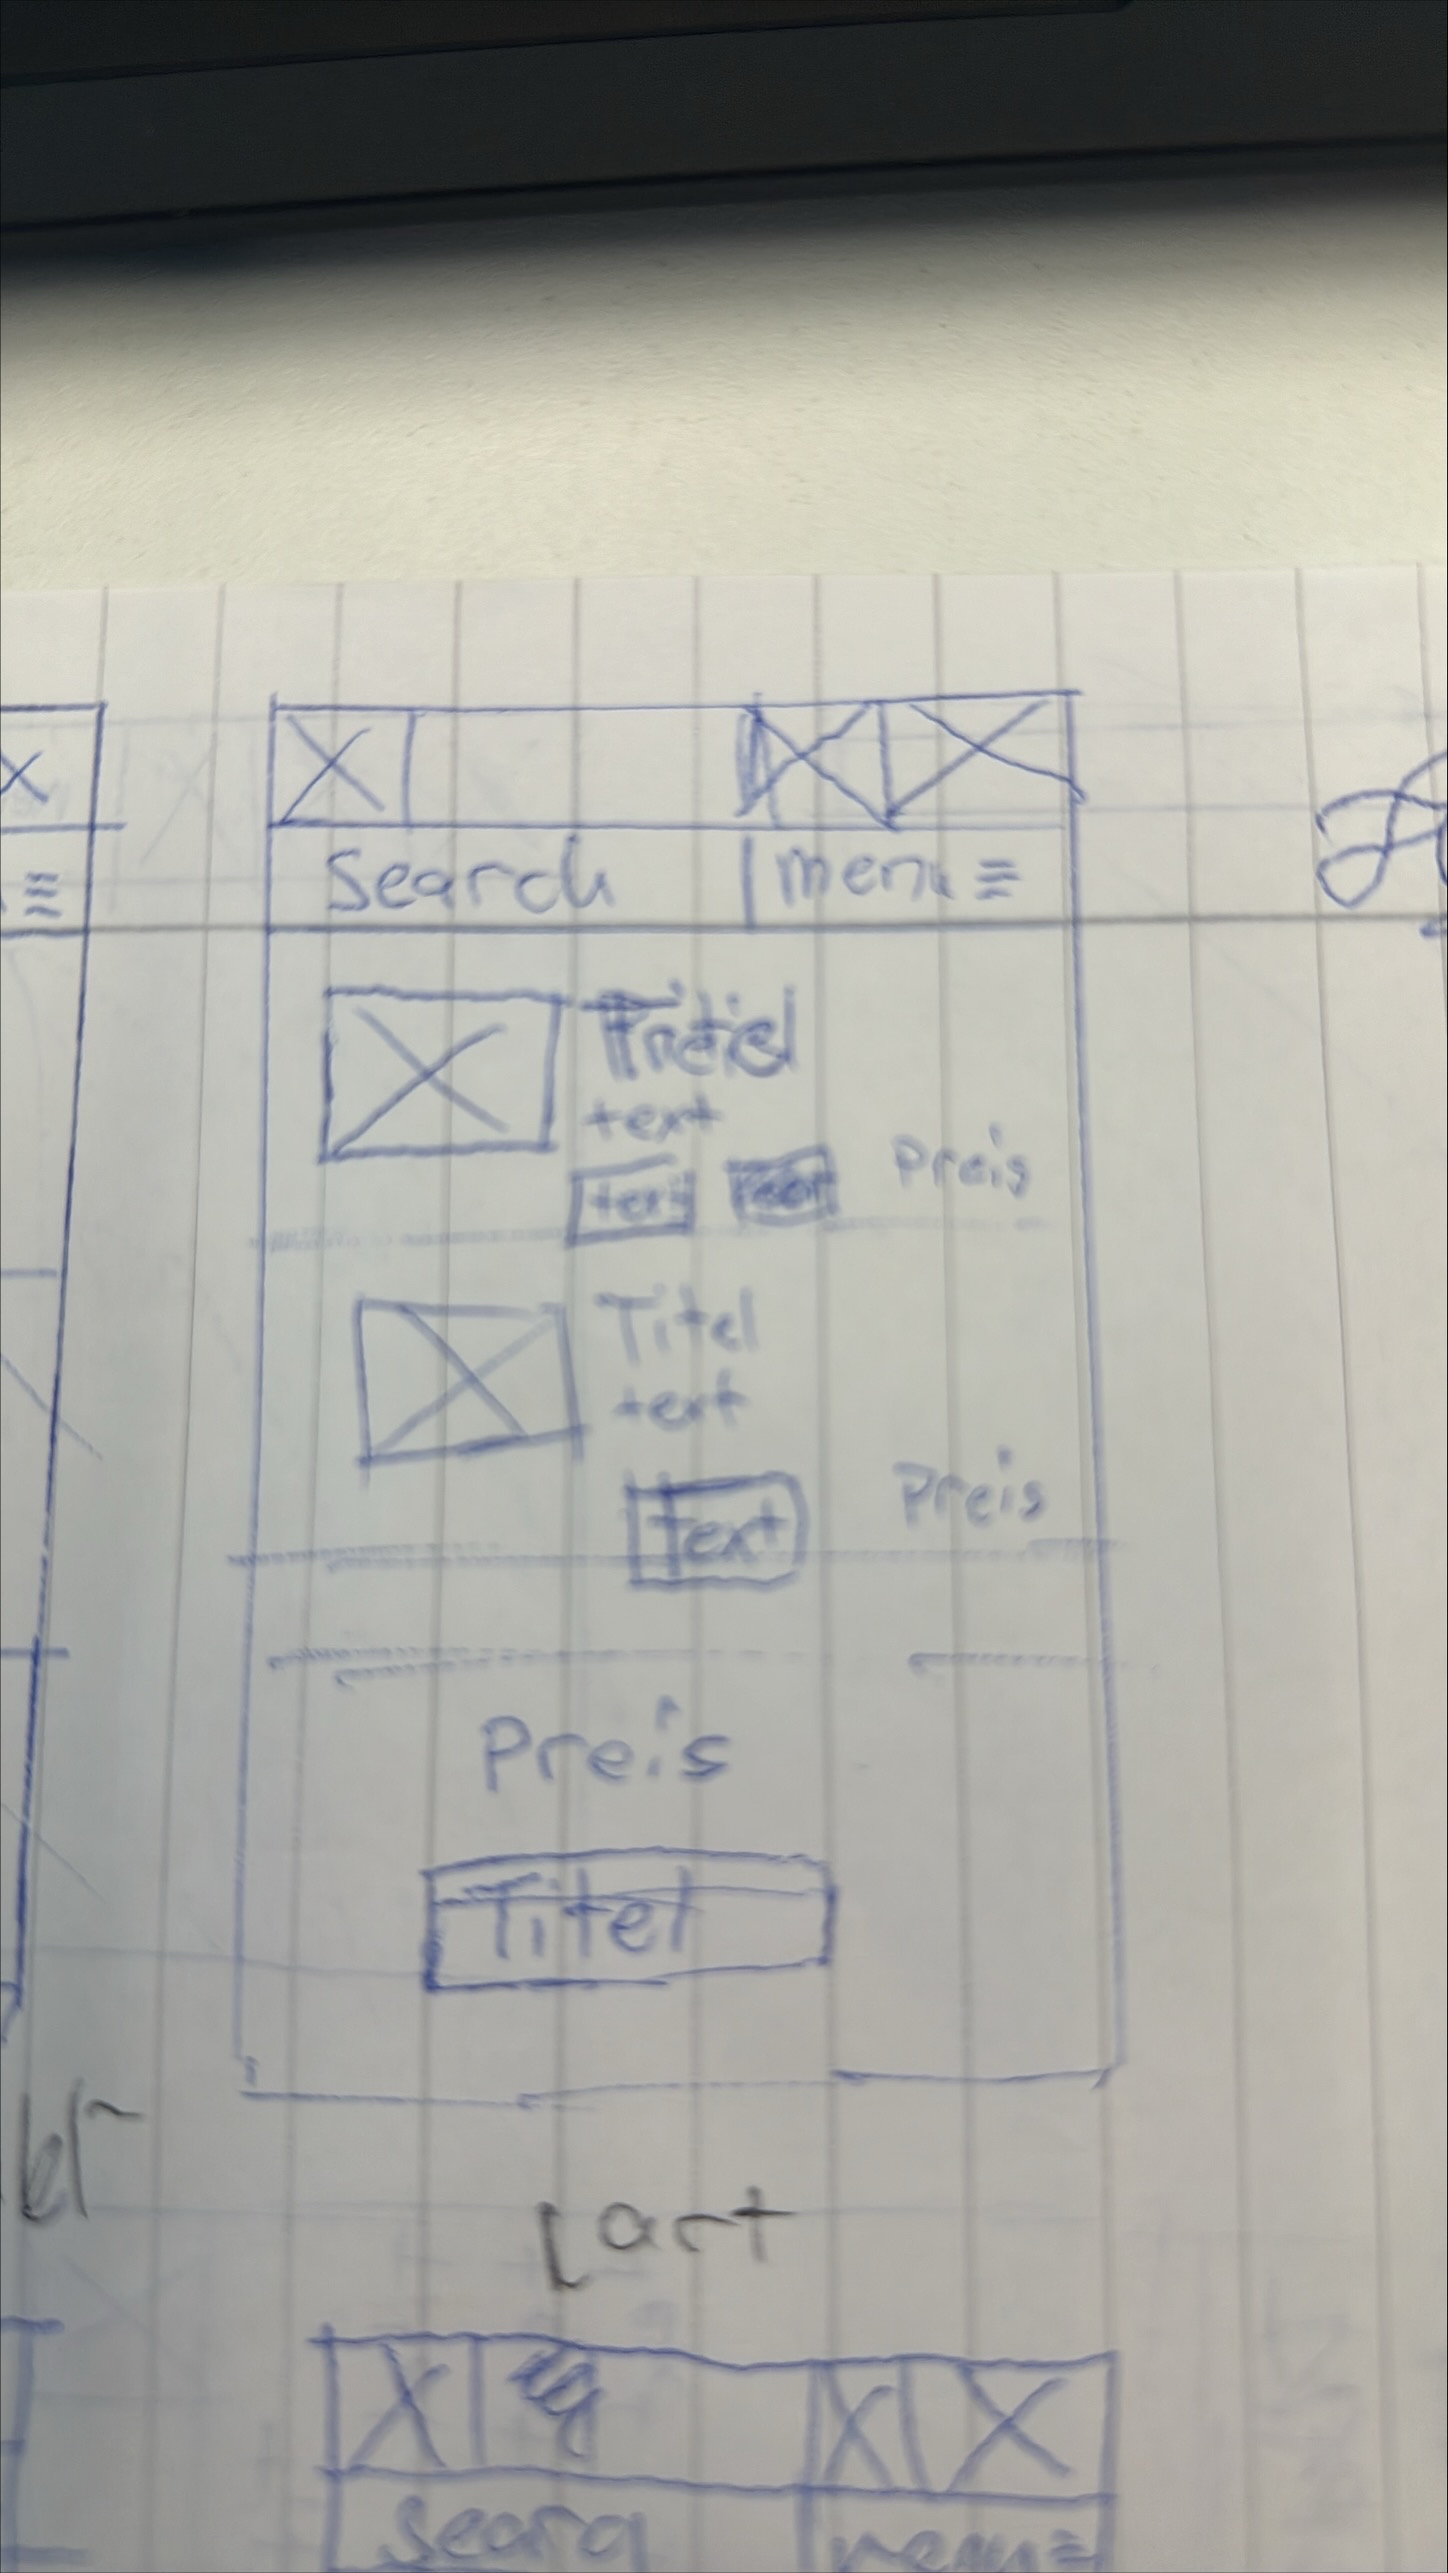 Search menu ≡
Titel
text
text Preis
Titel
text
Text Preis
Preis
Titel
Cart